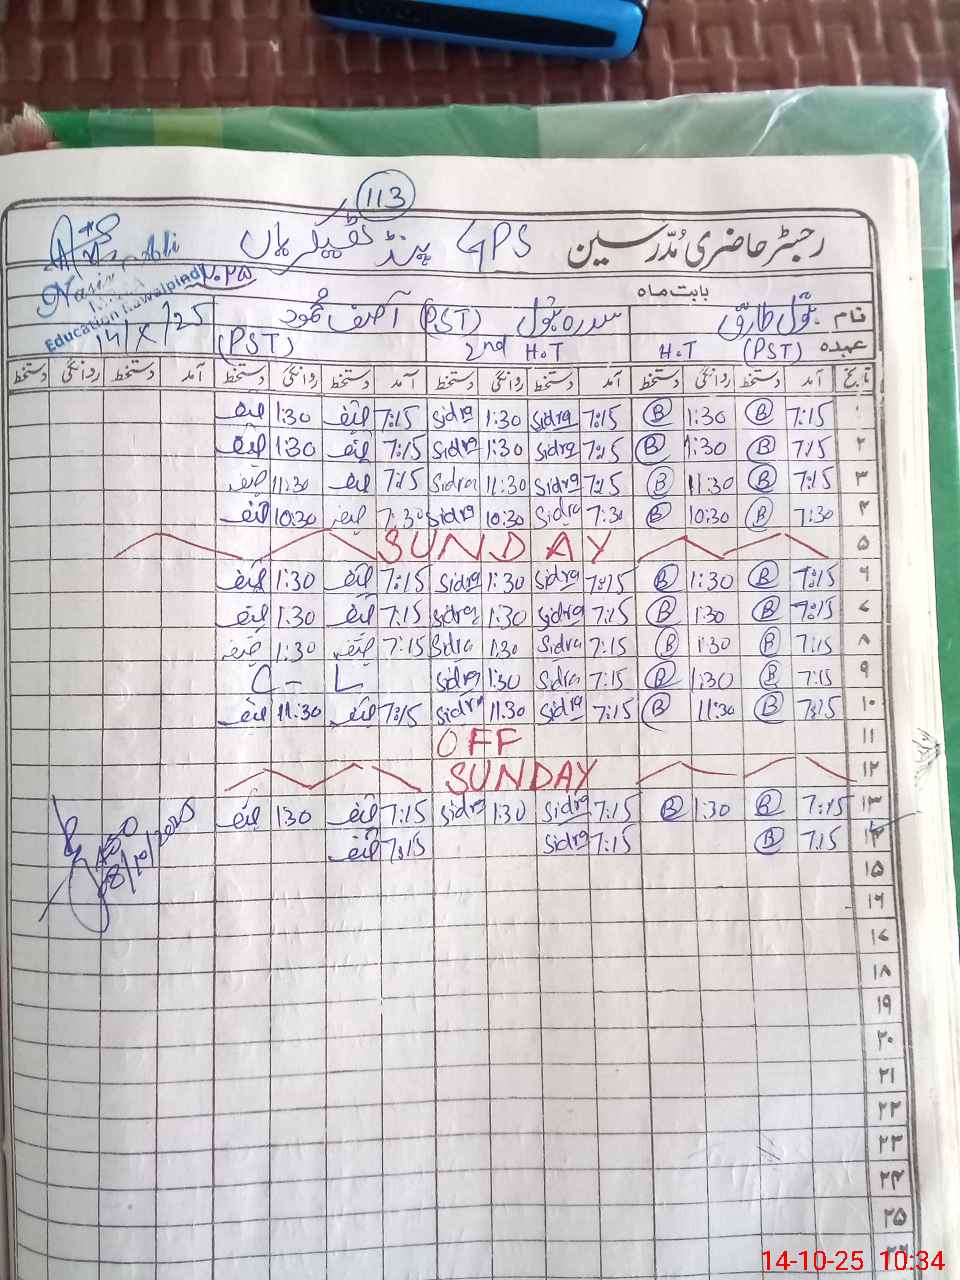 113
رجسٹر حاضری مدرسین GPS پنڈ
Ali
Nasir
Education Rawalpindi
14/X/25
بابت ماہ ۲۰۲۵
نام بتول طارق سدرہ بتول (PST) آصف محمود
عہدہ (PST) H.T 2nd H.T (PST)
تاریخ آمد دستخط روانگی دستخط آمد دستخط روانگی دستخط آمد دستخط روانگی دستخط آمد دستخط روانگی دستخط
۱ 7:15 B 1:30 B 7:15 Sidra 1:30 Sidra 7:15 آصف 1:30 آصف
۲ 7:15 B 1:30 B 7:15 Sidra 1:30 Sidra 7:15 آصف 1:30 آصف
۳ 7:15 B 11:30 B 7:15 Sidra 11:30 Sidra 7:15 آصف 11:30 آصف
۴ 7:30 B 10:30 B 7:30 Sidra 10:30 Sidra 7:30 آصف 10:30 آصف
۵ SUNDAY
۶ 7:15 B 1:30 B 7:15 Sidra 1:30 Sidra 7:15 آصف 1:30 آصف
۷ 7:15 B 1:30 B 7:15 Sidra 1:30 Sidra 7:15 آصف 1:30 آصف
۸ 7:15 B 1:30 B 7:15 Sidra 1:30 Sidra 7:15 آصف 1:30 آصف
۹ 7:15 B 1:30 B 7:15 Sidra 1:30 Sidra C-L
۱۰ 7:15 B 11:30 B 7:15 Sidra 11:30 Sidra 7:15 آصف 11:30 آصف
۱۱ OFF
۱۲ SUNDAY
۱۳ 7:15 B 1:30 B 7:15 Sidra 1:30 Sidra 7:15 آصف 130 آصف
۱۴ 7:15 B 7:15 Sidra 7:15 آصف
08/10/2025
۱۵
۱۶
۱۷
۱۸
۱۹
۲۰
۲۱
۲۲
۲۳
۲۴
۲۵
۲۶
14-10-25 10:34